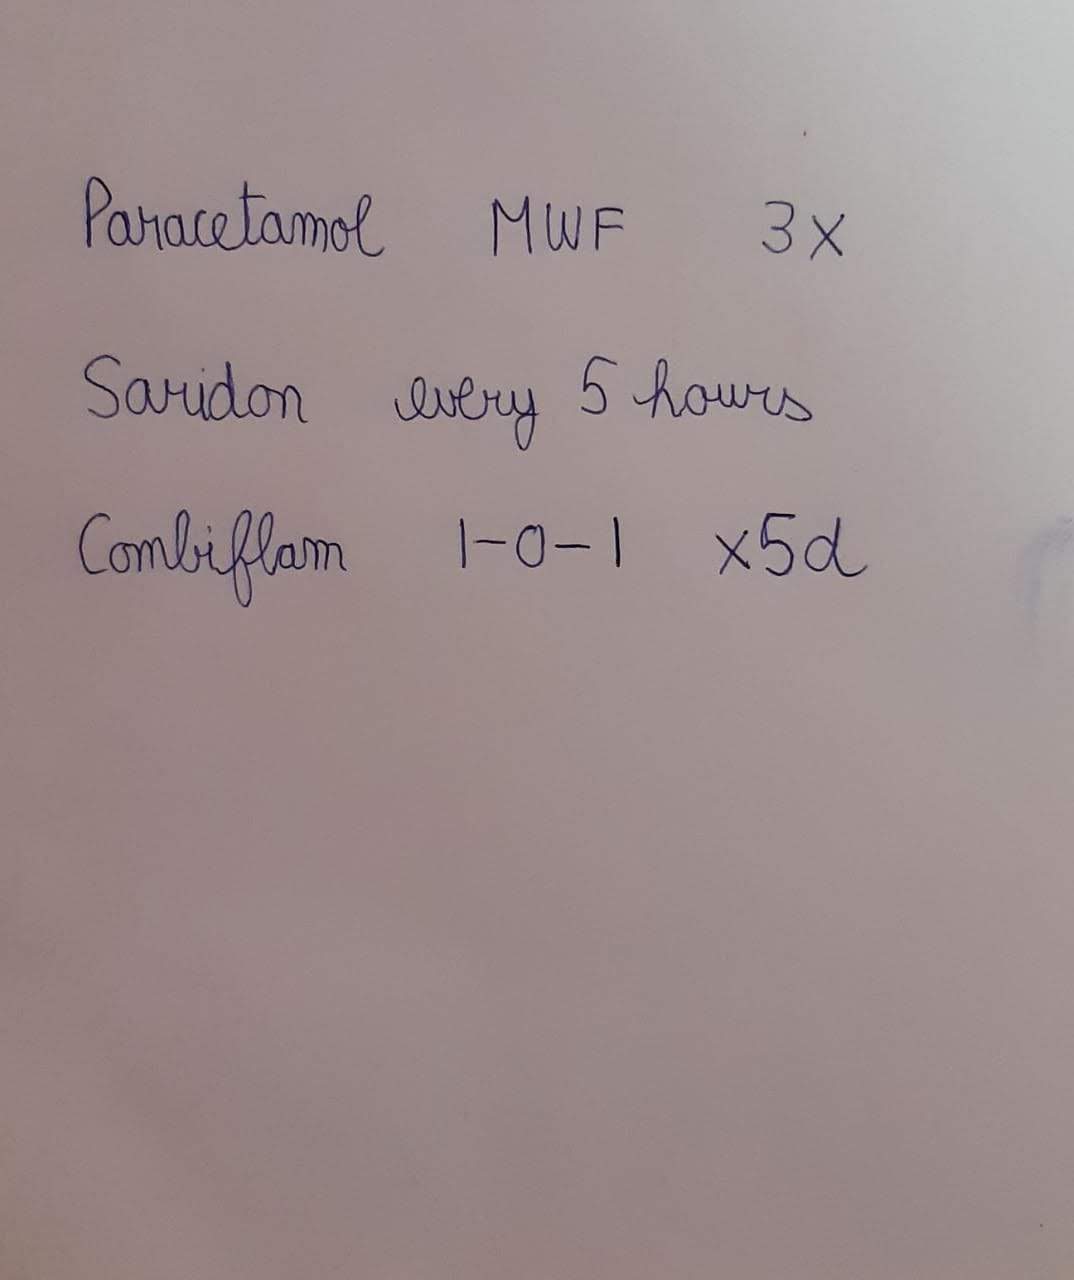 Paracetamol MWF 3x
Saridon every 5 hours
Combiflam 1-0-1 x5d